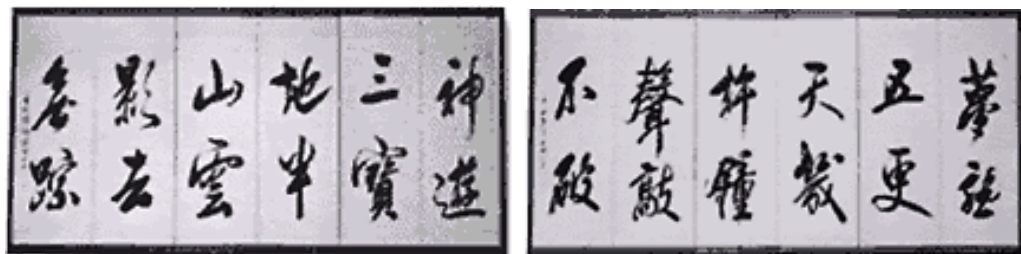 夢熟
五更
天幾
杵鐘
聲敲
不破
神遊
三寶
地半
山雲
影去
無踪